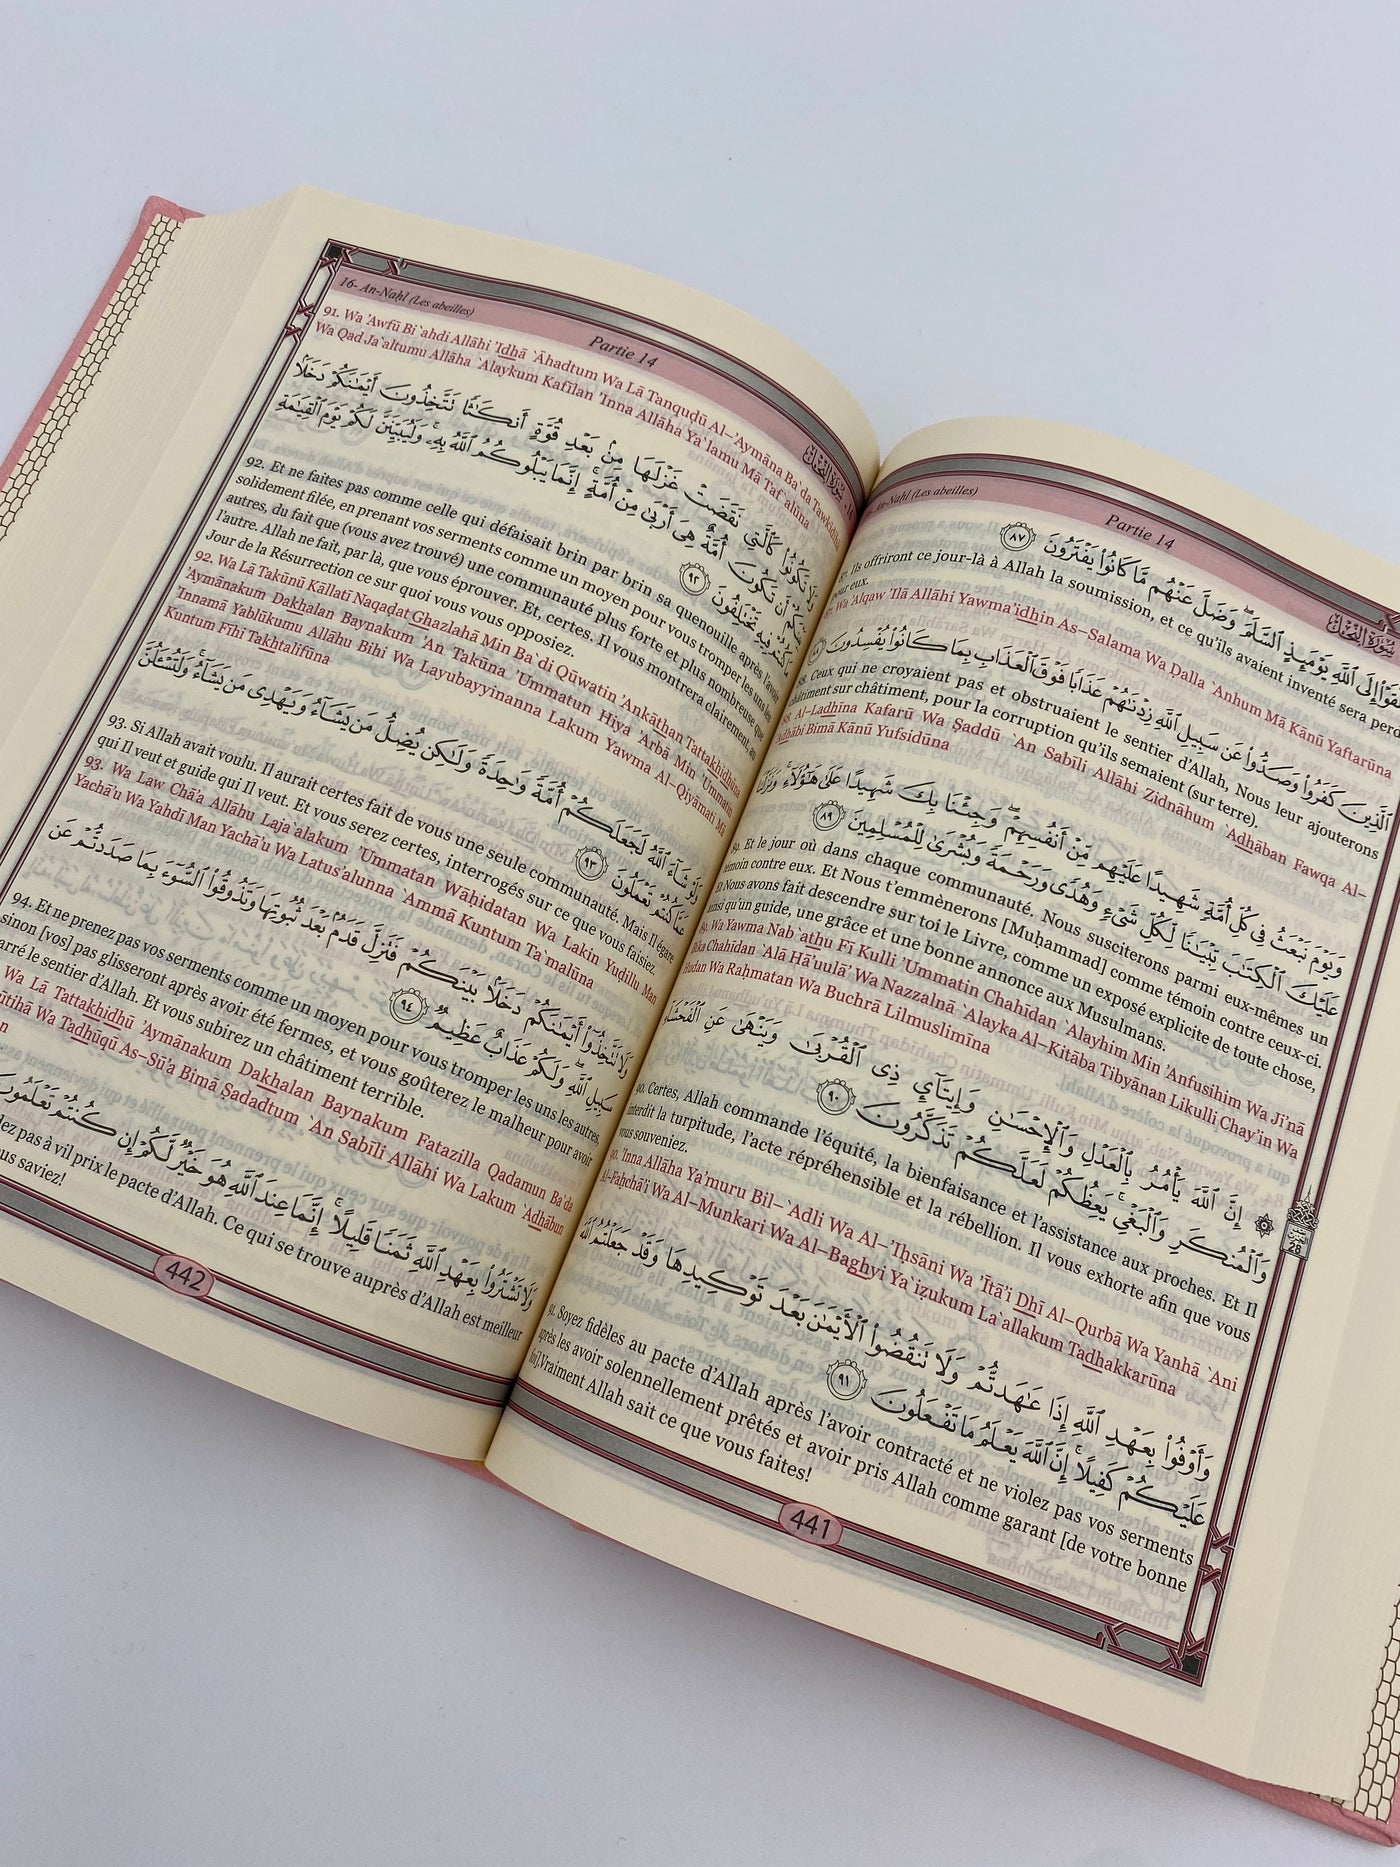 إِلَى ٱللَّهِ يَوْمَئِذٍ ٱلسَّلَمَ ۖ وَضَلَّ عَنْهُم مَّا كَانُوا۟ يَفْتَرُونَ ٨٧
Ils offriront ce jour-là à Allah la soumission, et ce qu'ils avaient inventé sera
pour eux.
Wa 'Alqaw 'Ilá Allāhi Yawma'idhin As-Salama Wa Dalla `Anhum Mā Kānū Yaftarūna
ٱلَّذِينَ كَفَرُوا۟ وَصَدُّوا۟ عَن سَبِيلِ ٱللَّهِ زِدْنَٰهُمْ عَذَابًا فَوْقَ ٱلْعَذَابِ بِمَا كَانُوا۟ يُفْسِدُونَ ٨٨
Ceux qui ne croyaient pas et obstruaient le sentier d'Allah, Nous leur ajouterons
châtiment sur châtiment, pour la corruption qu'ils semaient (sur terre).
Al-Ladhīna Kafarū Wa Ṣaddū `An Sabīli Allāhi Zidnāhum `Adhāban Fawqa Al-
`Adhābi Bimā Kānū Yufsidūna
وَيَوْمَ نَبْعَثُ فِى كُلِّ أُمَّةٍ شَهِيدًا عَلَيْهِم مِّنْ أَنفُسِهِمْ ۖ وَجِئْنَا بِكَ شَهِيدًا عَلَىٰ هَٰٓؤُلَآءِ ۚ وَنَزَّلْنَا
عَلَيْكَ ٱلْكِتَٰبَ تِبْيَٰنًا لِّكُلِّ شَىْءٍ وَهُدًى وَرَحْمَةً وَبُشْرَىٰ لِلْمُسْلِمِينَ ٨٩
89. Et le jour où dans chaque communauté. Nous susciterons parmi eux-mêmes un
témoin contre eux. Et Nous t'emmènerons [Muḥammad] comme témoin contre ceux-ci.
Et Nous avons fait descendre sur toi le Livre, comme un exposé explicite de toute chose,
ainsi qu'un guide, une grâce et une bonne annonce aux Musulmans.
89. Wa Yawma Nab`athu Fī Kulli 'Ummatin Chahīdan `Alayhim Min 'Anfusihim Wa Ji'nā
Bika Chahīdan `Alá Hā'uulā' Wa Nazzalnā `Alayka Al-Kitāba Tibyānan Likulli Chay'in Wa
Hudan Wa Raḥmatan Wa Buchrá Lilmuslimīna
إِنَّ ٱللَّهَ يَأْمُرُ بِٱلْعَدْلِ وَٱلْإِحْسَٰنِ وَإِيتَآئِ ذِى ٱلْقُرْبَىٰ وَيَنْهَىٰ عَنِ ٱلْفَحْشَآءِ
وَٱلْمُنكَرِ وَٱلْبَغْىِ ۚ يَعِظُكُمْ لَعَلَّكُمْ تَذَكَّرُونَ ٩٠
90. Certes, Allah commande l'équité, la bienfaisance et l'assistance aux proches. Et Il
interdit la turpitude, l'acte répréhensible et la rébellion. Il vous exhorte afin que vous
vous souveniez.
90. 'Inna Allāha Ya'muru Bil-`Adli Wa Al-'Iḥsāni Wa 'Ītā'i Dhī Al-Qurbá Wa Yanhá `Ani
Al-Faḥchā'i Wa Al-Munkari Wa Al-Baghyi Ya`izukum La`allakum Tadhakkarūna
وَأَوْفُوا۟ بِعَهْدِ ٱللَّهِ إِذَا عَٰهَدتُّمْ وَلَا تَنقُضُوا۟ ٱلْأَيْمَٰنَ بَعْدَ تَوْكِيدِهَا وَقَدْ جَعَلْتُمُ ٱللَّهَ
عَلَيْكُمْ كَفِيلًا ۚ إِنَّ ٱللَّهَ يَعْلَمُ مَا تَفْعَلُونَ ٩١
91. Soyez fidèles au pacte d'Allah après l'avoir contracté et ne violez pas vos serments
après les avoir solennellement prêtés et avoir pris Allah comme garant [de votre bonne
foi].Vraiment Allah sait ce que vous faites!
441
An-Naḥl (Les abeilles)
Partie 14
سُورَةُ النَّحۡل
28
16- An-Naḥl (Les abeilles)
Partie 14
سُورَةُ النَّحۡل
91. Wa 'Awfū Bi`ahdi Allāhi 'Idhā `Āhadtum Wa Lā Tanquḍū Al-'Aymāna Ba`da Tawkīdihā
Wa Qad Ja`altumu Allāha `Alaykum Kafīlan 'Inna Allāha Ya`lamu Mā Taf`alūna
وَلَا تَكُونُوا۟ كَٱلَّتِى نَقَضَتْ غَزْلَهَا مِنۢ بَعْدِ قُوَّةٍ أَنكَٰثًا تَتَّخِذُونَ أَيْمَٰنَكُمْ دَخَلًۢا
بَيْنَكُمْ أَن تَكُونَ أُمَّةٌ هِىَ أَرْبَىٰ مِنْ أُمَّةٍ ۚ إِنَّمَا يَبْلُوكُمُ ٱللَّهُ بِهِۦ ۚ وَلَيُبَيِّنَنَّ لَكُمْ يَوْمَ ٱلْقِيَٰمَةِ
مَا كُنتُمْ فِيهِ تَخْتَلِفُونَ ٩٢
92. Et ne faites pas comme celle qui défaisait brin par brin sa quenouille après l'avoir
solidement filée, en prenant vos serments comme un moyen pour vous tromper les uns les
autres, du fait que (vous avez trouvé) une communauté plus forte et plus nombreuse que
l'autre. Allah ne fait, par là, que vous éprouver. Et, certes. Il vous montrera clairement, au
Jour de la Résurrection ce sur quoi vous vous opposiez.
92. Wa Lā Takūnū Kāllatī Naqaḍat Ghazlahā Min Ba`di Qūwatin 'Ankāthan Tattakhidhūna
'Aymānakum Dakhalan Baynakum 'An Takūna 'Ummatun Hiya 'Arbá Min 'Ummatin
'Innamā Yablūkumu Allāhu Bihi Wa Layubayyinanna Lakum Yawma Al-Qiyāmati Mā
Kuntum Fīhi Takhtalifūna
وَلَوْ شَآءَ ٱللَّهُ لَجَعَلَكُمْ أُمَّةً وَٰحِدَةً وَلَٰكِن يُضِلُّ مَن يَشَآءُ وَيَهْدِى مَن يَشَآءُ ۚ وَلَتُسْـَٔلُنَّ
عَمَّا كُنتُمْ تَعْمَلُونَ ٩٣
93. Si Allah avait voulu. Il aurait certes fait de vous une seule communauté. Mais Il égare
qui Il veut et guide qui Il veut. Et vous serez certes, interrogés sur ce que vous faisiez.
93. Wa Law Chā'a Allāhu Laja`alakum 'Ummatan Wāḥidatan Wa Lakin Yudillu Man
Yachā'u Wa Yahdī Man Yachā'u Wa Latus'alunna `Ammā Kuntum Ta`malūna
وَلَا تَتَّخِذُوٓا۟ أَيْمَٰنَكُمْ دَخَلًۢا بَيْنَكُمْ فَتَزِلَّ قَدَمٌۢ بَعْدَ ثُبُوتِهَا وَتَذُوقُوا۟ ٱلسُّوٓءَ بِمَا صَدَدتُّمْ عَن
سَبِيلِ ٱللَّهِ ۖ وَلَكُمْ عَذَابٌ عَظِيمٌ ٩٤
94. Et ne prenez pas vos serments comme un moyen pour vous tromper les uns les autres,
sinon [vos] pas glisseront après avoir été fermes, et vous goûterez le malheur pour avoir
barré le sentier d'Allah. Et vous subirez un châtiment terrible.
Wa Lā Tattakhidhū 'Aymānakum Dakhalan Baynakum Fatazilla Qadamun Ba`da
Wa Tadhūqū As-Sū'a Bimā Ṣadadtum `An Sabīli Allāhi Wa Lakum `Adhābun
وَلَا تَشْتَرُوا۟ بِعَهْدِ ٱللَّهِ ثَمَنًا قَلِيلًا ۚ إِنَّمَا عِندَ ٱللَّهِ هُوَ خَيْرٌ لَّكُمْ إِن كُنتُمْ تَعْلَمُونَ
pas à vil prix le pacte d'Allah. Ce qui se trouve auprès d'Allah est meilleur
saviez!
442